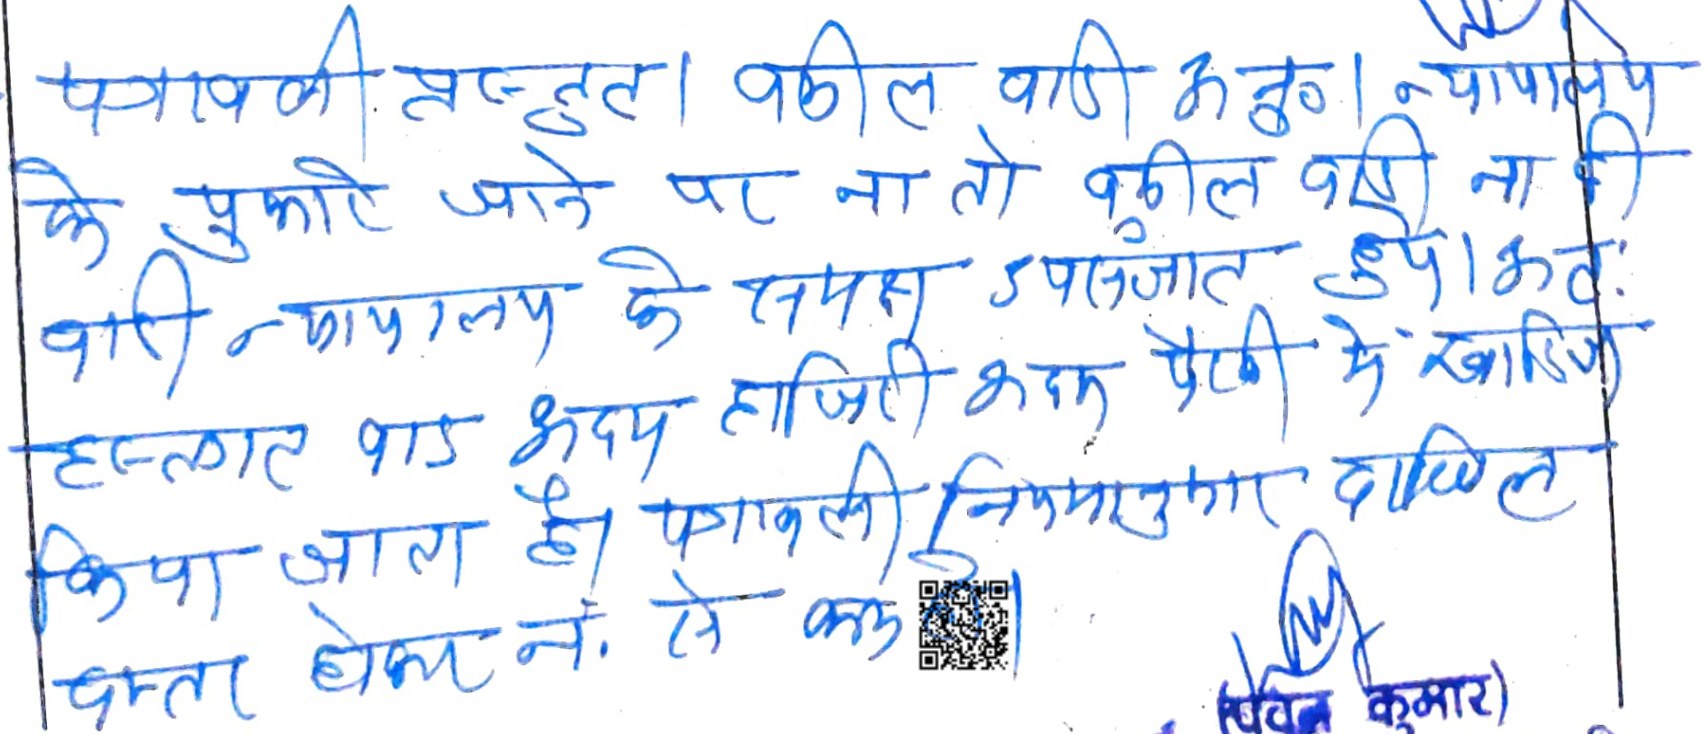 पत्रावली प्रस्तुत। वकील वादी अनु०। न्यायालय
के पुकारे जाने पर ना तो वकील वादी ना ही
वादी न्यायालय के समक्ष उपस्थित हुए। अतः
हस्तगत वाद अदम हाजिरी अदम पैरवी में खारिज
किया जाता है। पत्रावली नियमानुसार दाखिल
दफ्तर होकर नं. से कम हो।
कुमार)